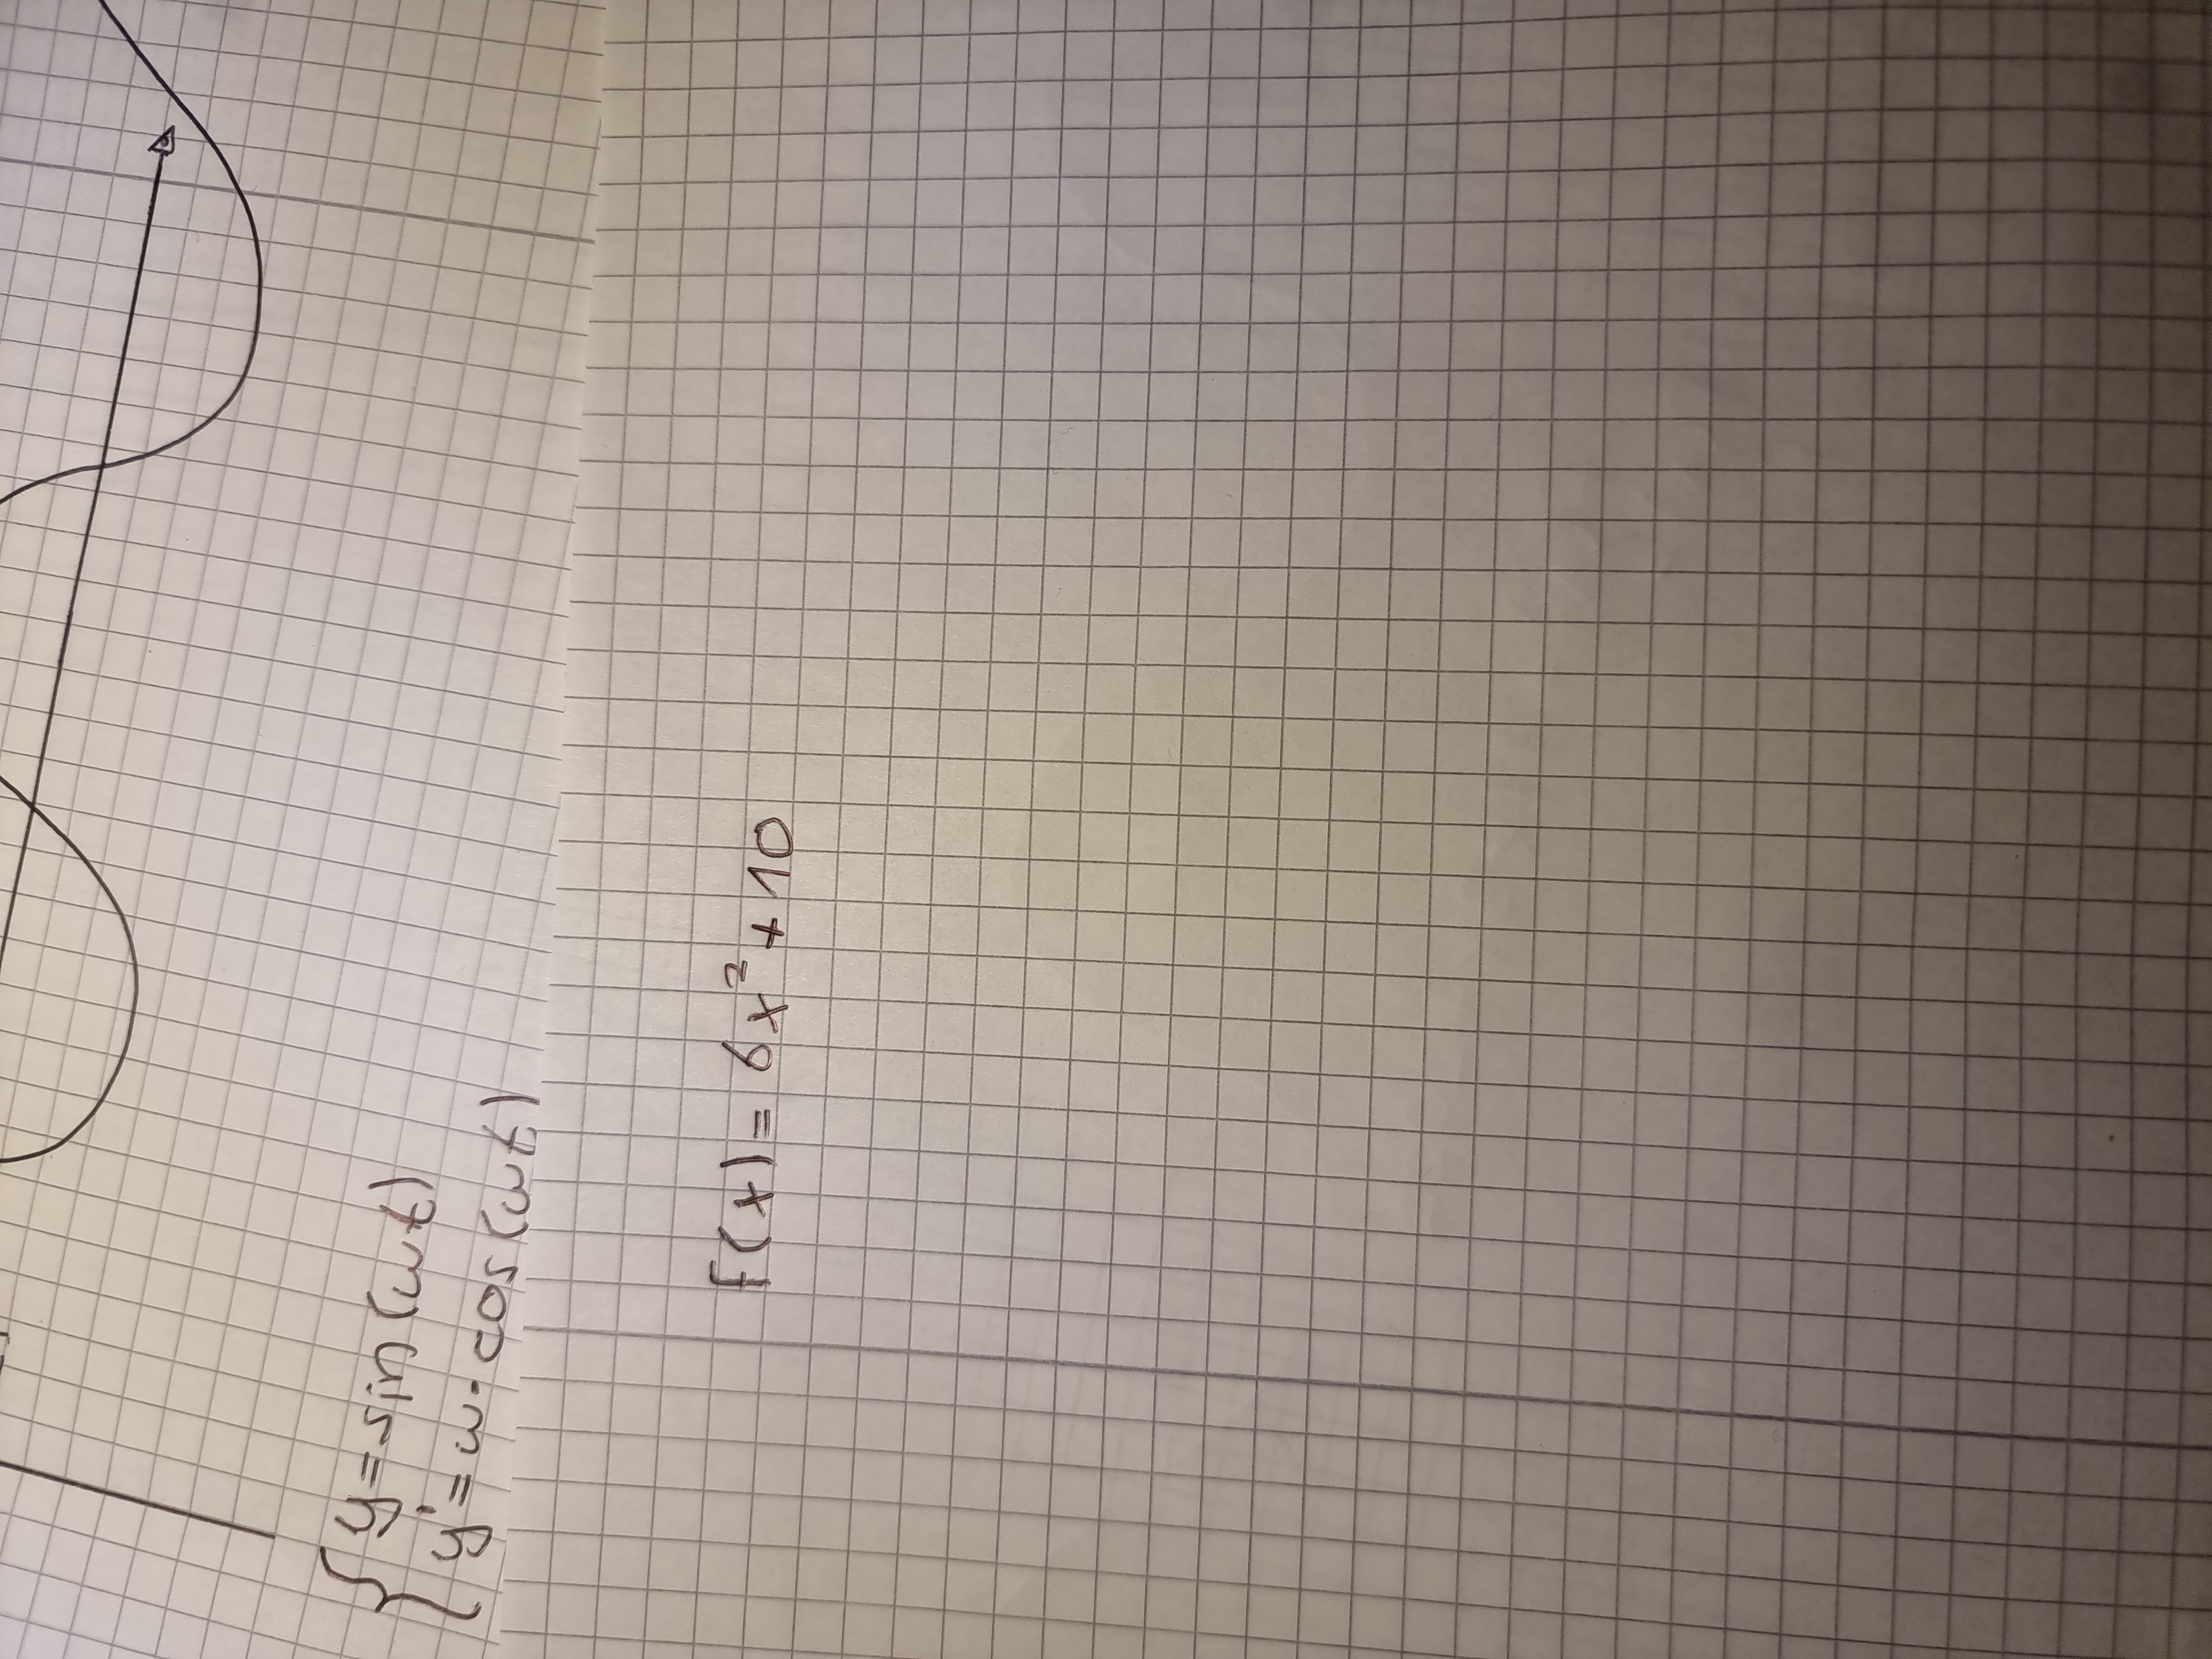 y=sin(ωt)
y'=ω·cos(ωt)
f(x)= 6x²+10